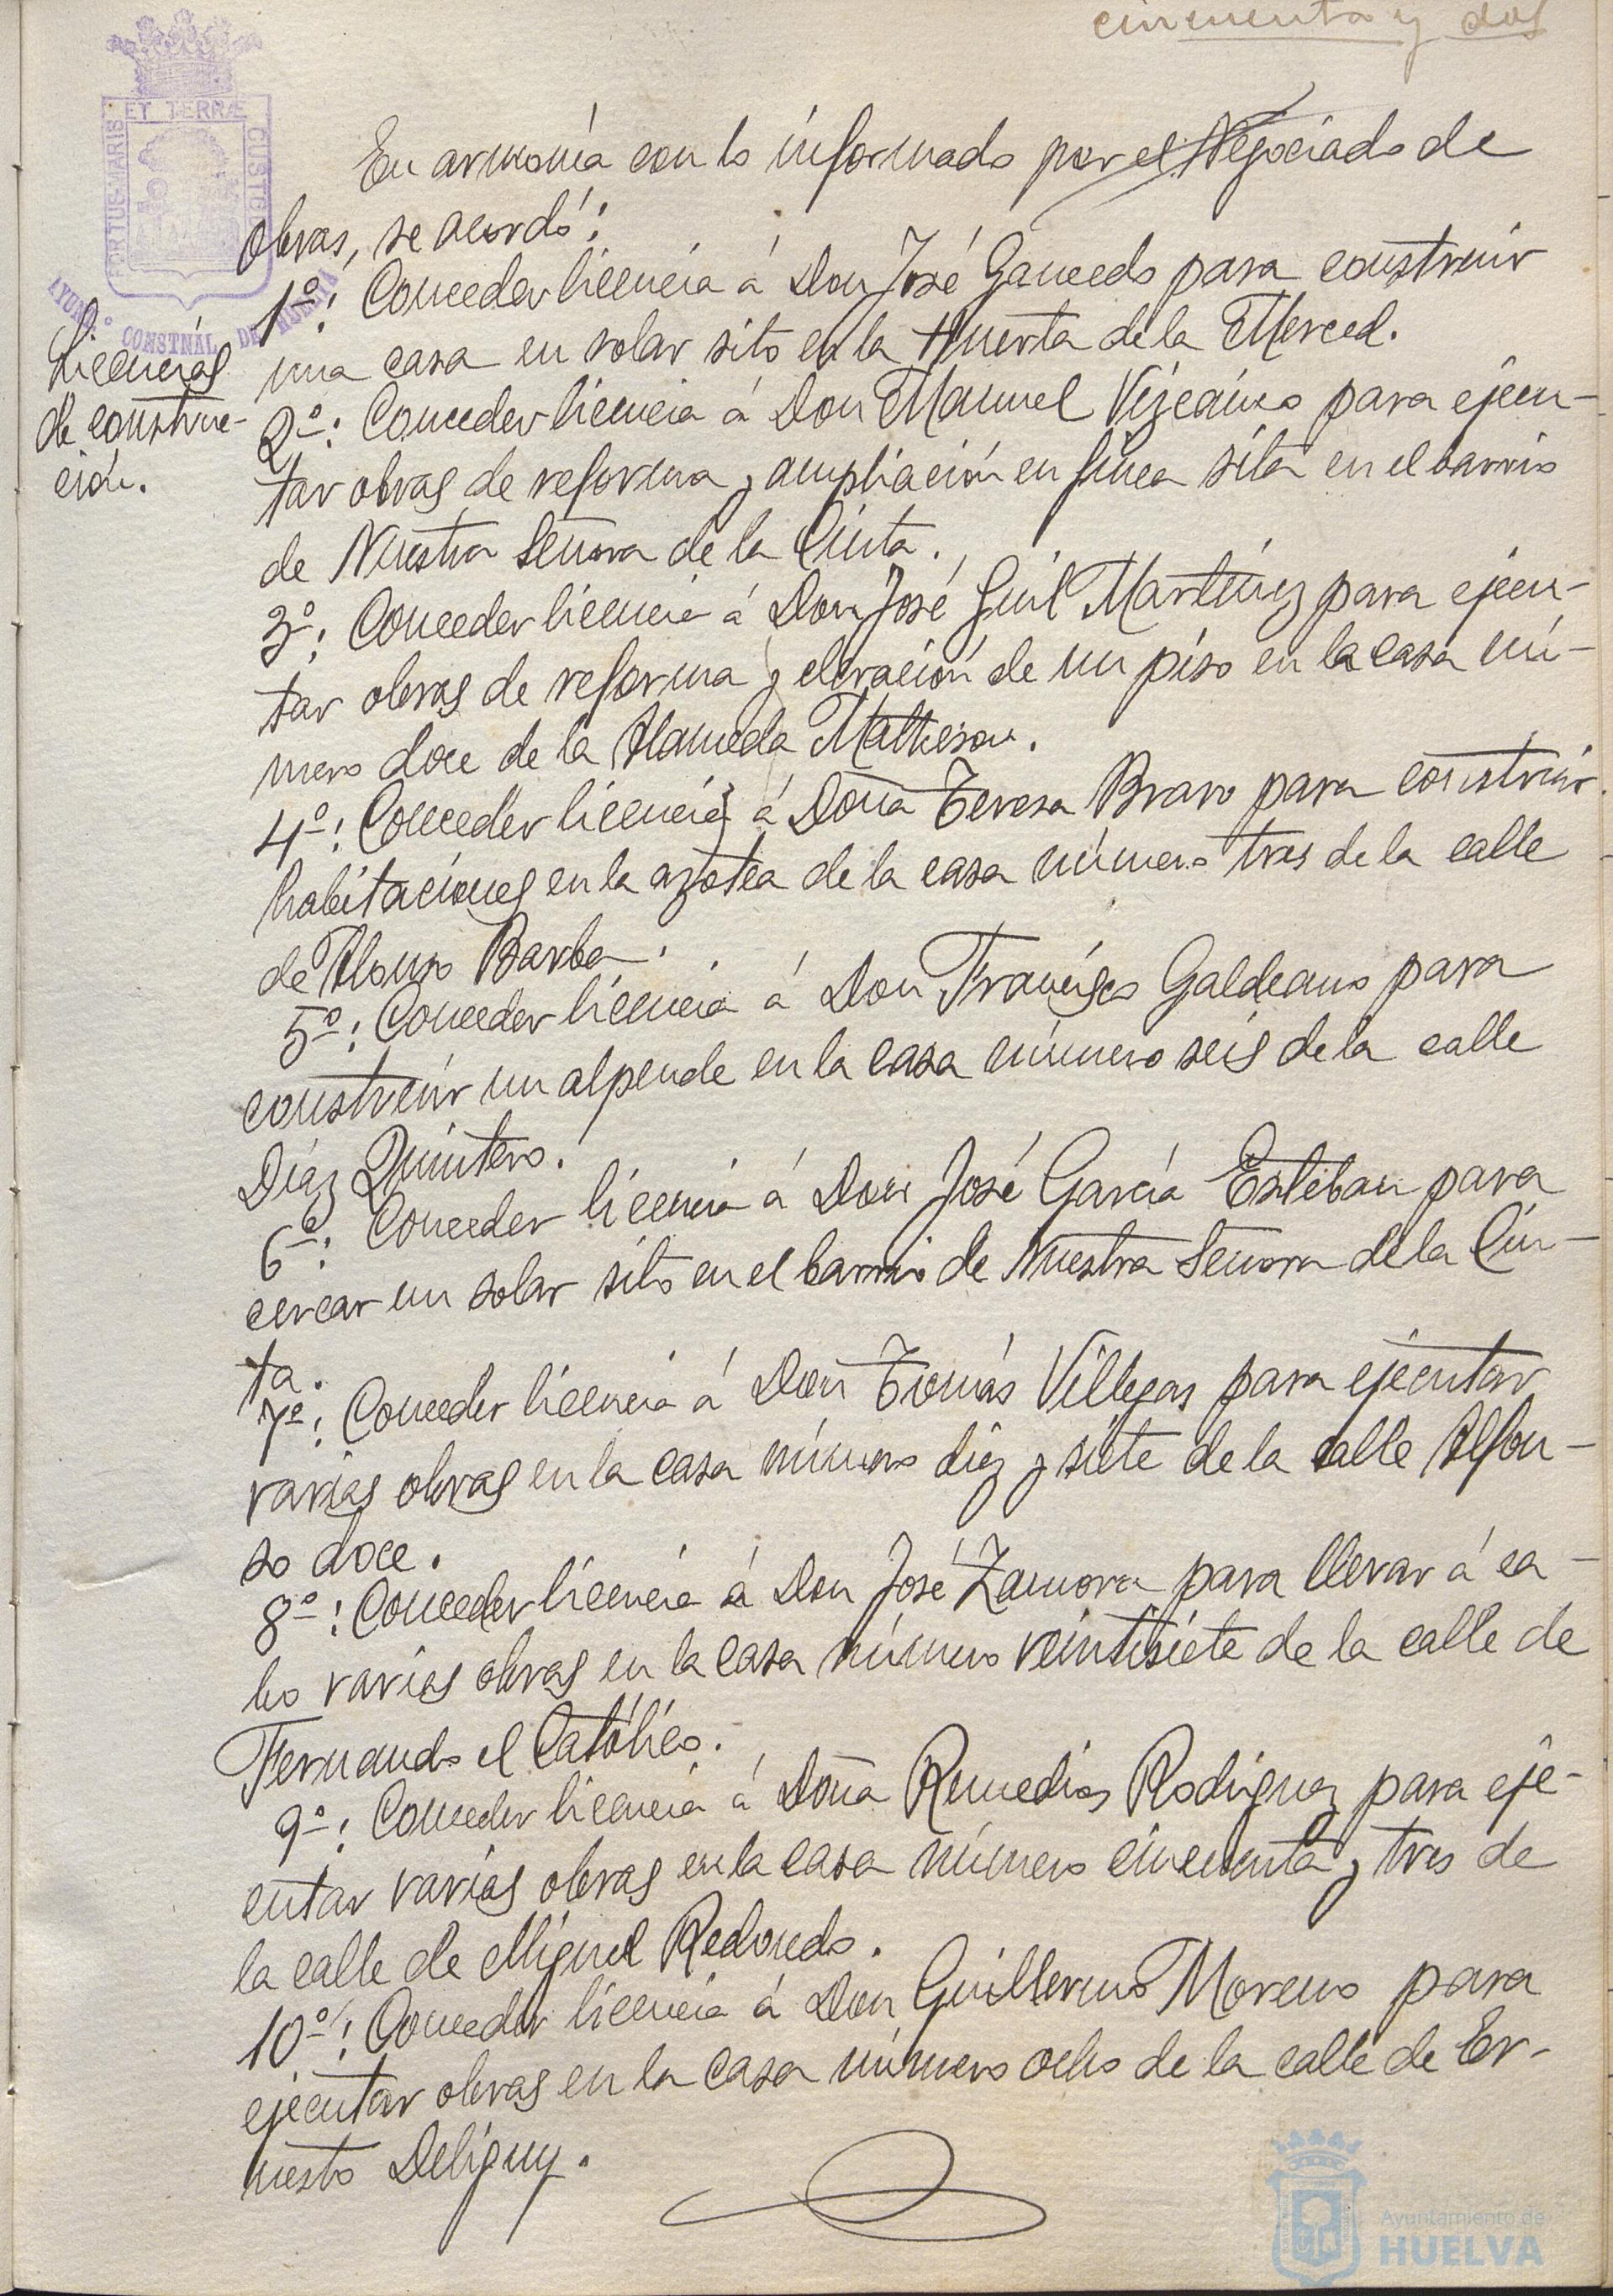 cincuenta y dos
PORTUS MARIS ET TERRÆ CUSTODIA
AYUNT.º CONSTNAL DE HUELVA
Licencias
de construc-
ción.
En armonía con lo informado por el Negociado de
obras, se acordó:
1º: Conceder licencia á Don José Gancedo para construir
una casa en solar sito en la Huerta de la Merced.
2º: Conceder licencia á Don Manuel Vizcaíno para ejecu-
tar obras de reforma y ampliación en finca sita en el barrio
de Nuestra Señora de la Cinta.
3º: Conceder licencia á Don José Guil Martínez para ejecu-
tar obras de reforma y elevación de un piso en la casa nú-
mero doce de la Alameda Matheson.
4º: Conceder licencia á Doña Teresa Bravo para construir
habitaciones en la azotea de la casa número tres de la calle
de Alonso Barba.
5º: Conceder licencia á Don Francisco Galdeano para
construir un alpende en la casa número seis de la calle
Díaz Quintero.
6º: Conceder licencia á Don José García Esteban para
cercar un solar sito en el barrio de Nuestra Señora de la Cin-
ta.
7º: Conceder licencia á Don Tomás Villegas para ejecutar
varias obras en la casa número diez y siete de la calle Alfon-
so doce.
8º: Conceder licencia á Don José Zamora para llevar á ca-
bo varias obras en la casa número veintisiete de la calle de
Fernando el Católico.
9º: Conceder licencia á Doña Remedios Rodriguez para eje-
cutar varias obras en la casa número cincuenta y tres de
la calle de Miguel Redondo.
10º: Conceder licencia á Don Guillermo Moreno para
ejecutar obras en la casa número ocho de la calle de Er-
nesto Deligny.
Ayuntamiento de
HUELVA